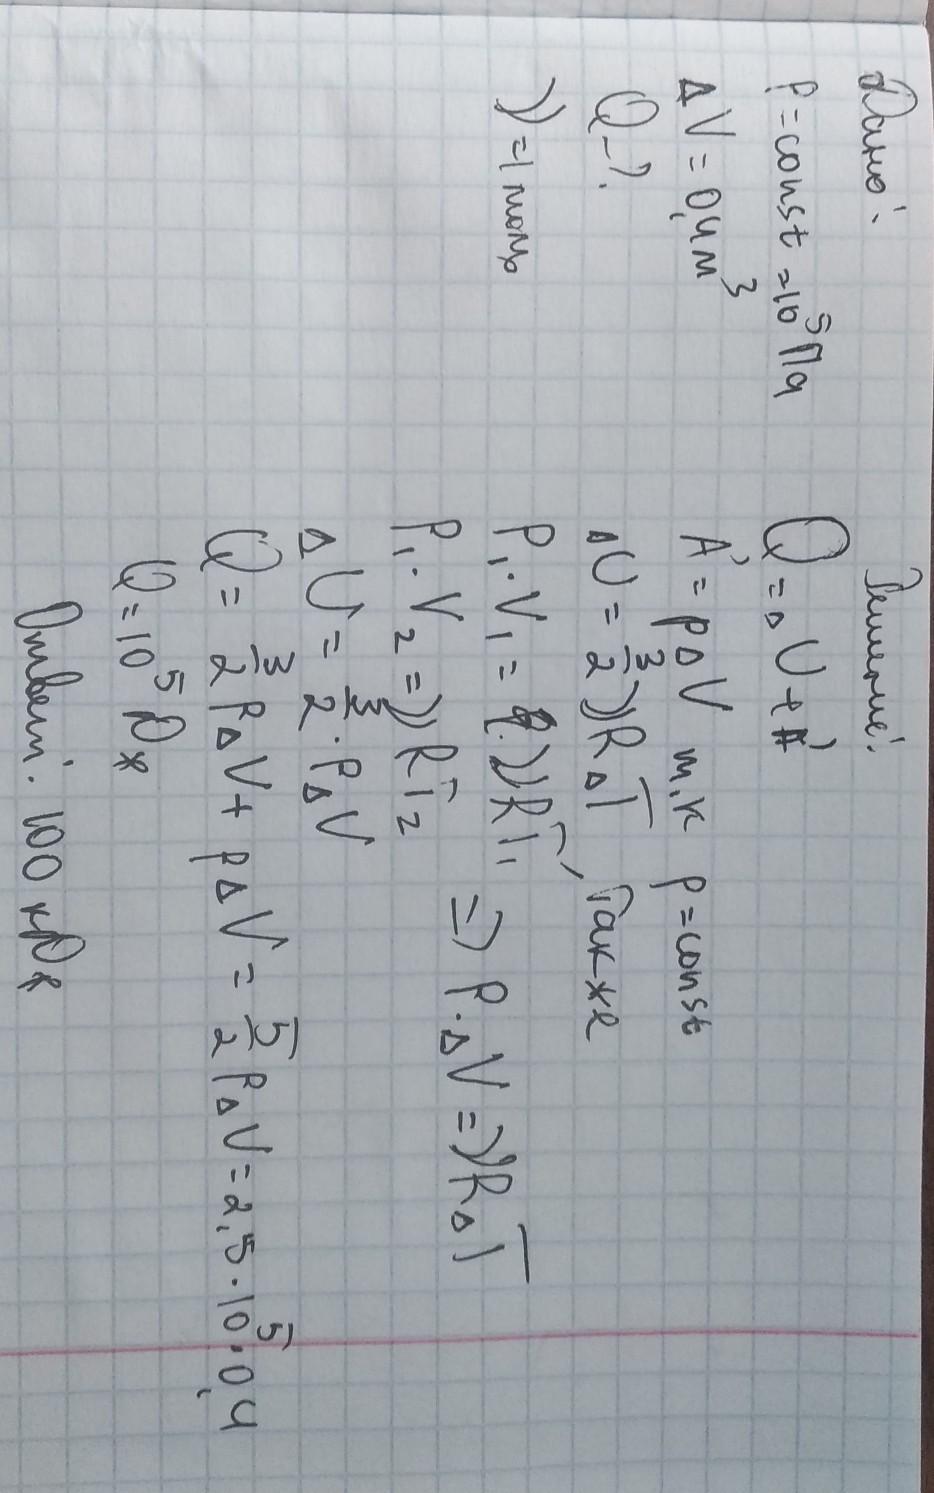 Дано:
P=const=10⁵Па
ΔV=0,4м³
Q-?
ν=1моль
Решение:
Q=ΔU+A'
A'=pΔV т.к p=const
ΔU=3/2νRΔT, также
P₁·V₁=νRT₁
P₁·V₂=νRT₂
=> P·ΔV=νRΔT
ΔU=3/2·PΔV
Q=3/2PΔV+pΔV=5/2PΔV=2,5·10⁵·0,4
Q=10⁵Дж
Ответ: 100 кДж